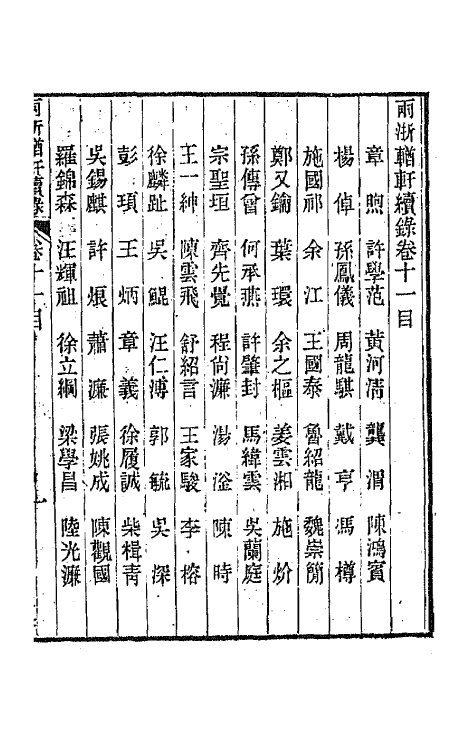 兩浙輶軒續錄卷十一目
章煦 許學范 黃河清 龔渭 陳鴻賓
楊倬 孫鳳儀 周龍騏 戴亨 馮樽
施國祁 余江 王國泰 魯紹龍 魏崇簡
鄭又鑰 葉環 余之樞 姜雲湘 施炌
孫傳曾 何承燕 許肇封 馬緯雲 吳蘭庭
宗聖垣 齊先覺 程尚濂 湯淦 陳時
王一紳 陳雲飛 舒紹言 王家駿 李榕
徐麟趾 吳鯤 汪仁溥 郭毓 吳深
彭頊 王炳 章義 徐履誠 柴楫青
吳錫麒 許烺 蕭濂 張姚成 陳觀國
羅錦森 汪輝祖 徐立綱 梁學昌 陸光濂
兩浙輶軒續錄 卷十一目